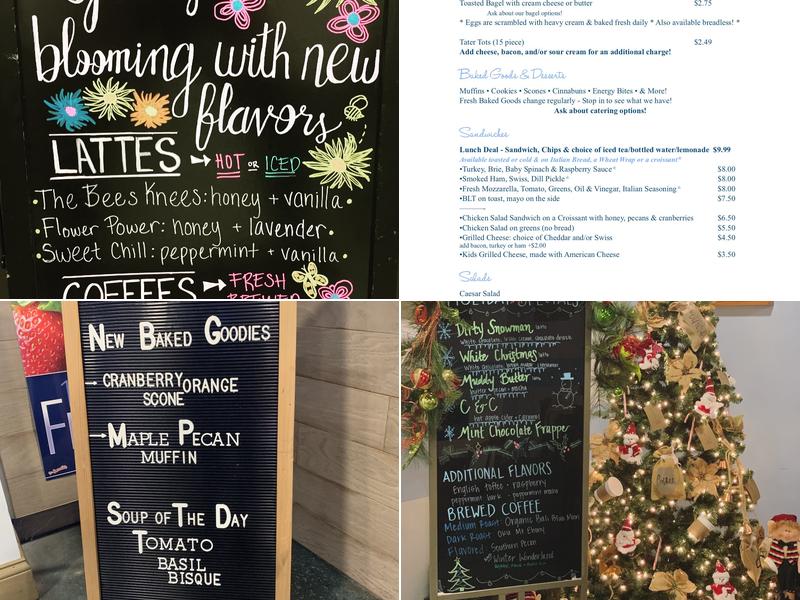 blooming with new
flavors
LATTES HOT OR ICED
The Bees Knees: honey + vanilla
Flower Power: honey + lavender
Sweet Chill: peppermint + vanilla
COFFEES FRESH
BREWED
Toasted Bagel with cream cheese or butter $2.75
Ask about our bagel options!
* Eggs are scrambled with heavy cream & baked fresh daily * Also available breadless! *
Tater Tots (15 piece) $2.49
Add cheese, bacon, and/or sour cream for an additional charge!
Baked Goods & Desserts
Muffins • Cookies • Scones • Cinnabuns • Energy Bites • & More!
Fresh Baked Goods change regularly - Stop in to see what we have!
Ask about catering options!
Sandwiches
Lunch Deal - Sandwich, Chips & choice of iced tea/bottled water/lemonade $9.99
Available toasted or cold & on Italian Bread, a Wheat Wrap or a croissant*
•Turkey, Brie, Baby Spinach & Raspberry Sauce* $8.00
•Smoked Ham, Swiss, Dill Pickle* $8.00
•Fresh Mozzarella, Tomato, Greens, Oil & Vinegar, Italian Seasoning* $8.00
•BLT on toast, mayo on the side $7.50
•Chicken Salad Sandwich on a Croissant with honey, pecans & cranberries $6.50
•Chicken Salad on greens (no bread) $5.50
•Grilled Cheese: choice of Cheddar and/or Swiss $4.50
add bacon, turkey or ham +$2.00
•Kids Grilled Cheese, made with American Cheese $3.50
Salads
Caesar Salad
NEW BAKED GOODIES
CRANBERRY ORANGE
SCONE
MAPLE PECAN
MUFFIN
SOUP OF THE DAY
TOMATO
BASIL
BISQUE
HOLIDAY SPECIALS
Dirty Snowman latte
White Christmas latte
Muddy Butter latte
butter pecan + mocha
C & C
hot apple cider + caramel
Mint Chocolate Frappe
ADDITIONAL FLAVORS
English toffee · raspberry
peppermint bark · peppermint mocha
BREWED COFFEE
Medium Roast: Organic Bali Blue Moon
Dark Roast:
Flavored: Southern Pecan
Winter Wonderland